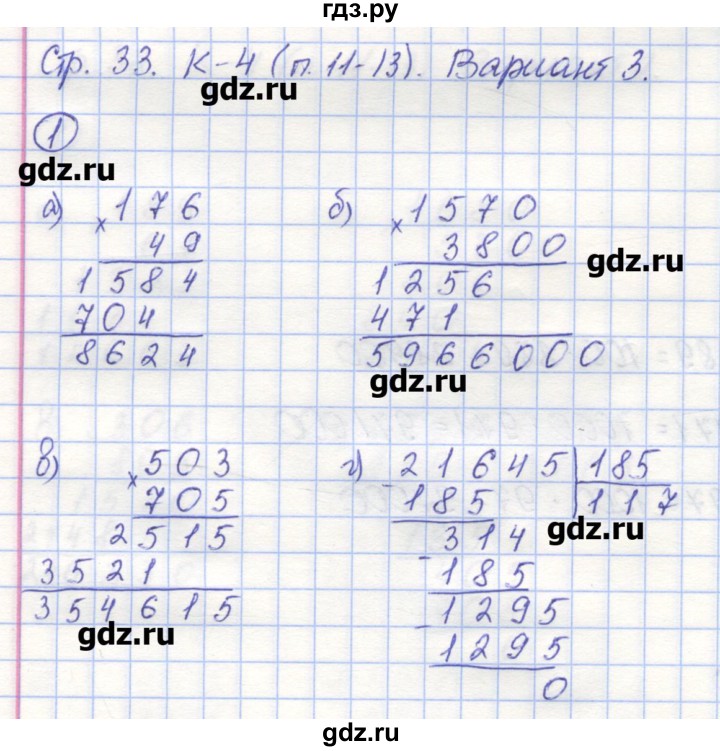 гдз.ру
Стр. 33. К-4 (п. 11-13). Вариант 3.
gdz.ru
1
gdz.ru
а) × 176
49
1584
704
8624
б) × 1570
3800
gdz.ru
1256
471
5966000
gdz.ru
в) × 503
705
2515
3521
354615
gdz.ru
г) - 21645 | 185
185 | 117
gdz.ru
314
- 185
1295
- 1295
0
gdz.ru
gdz.ru